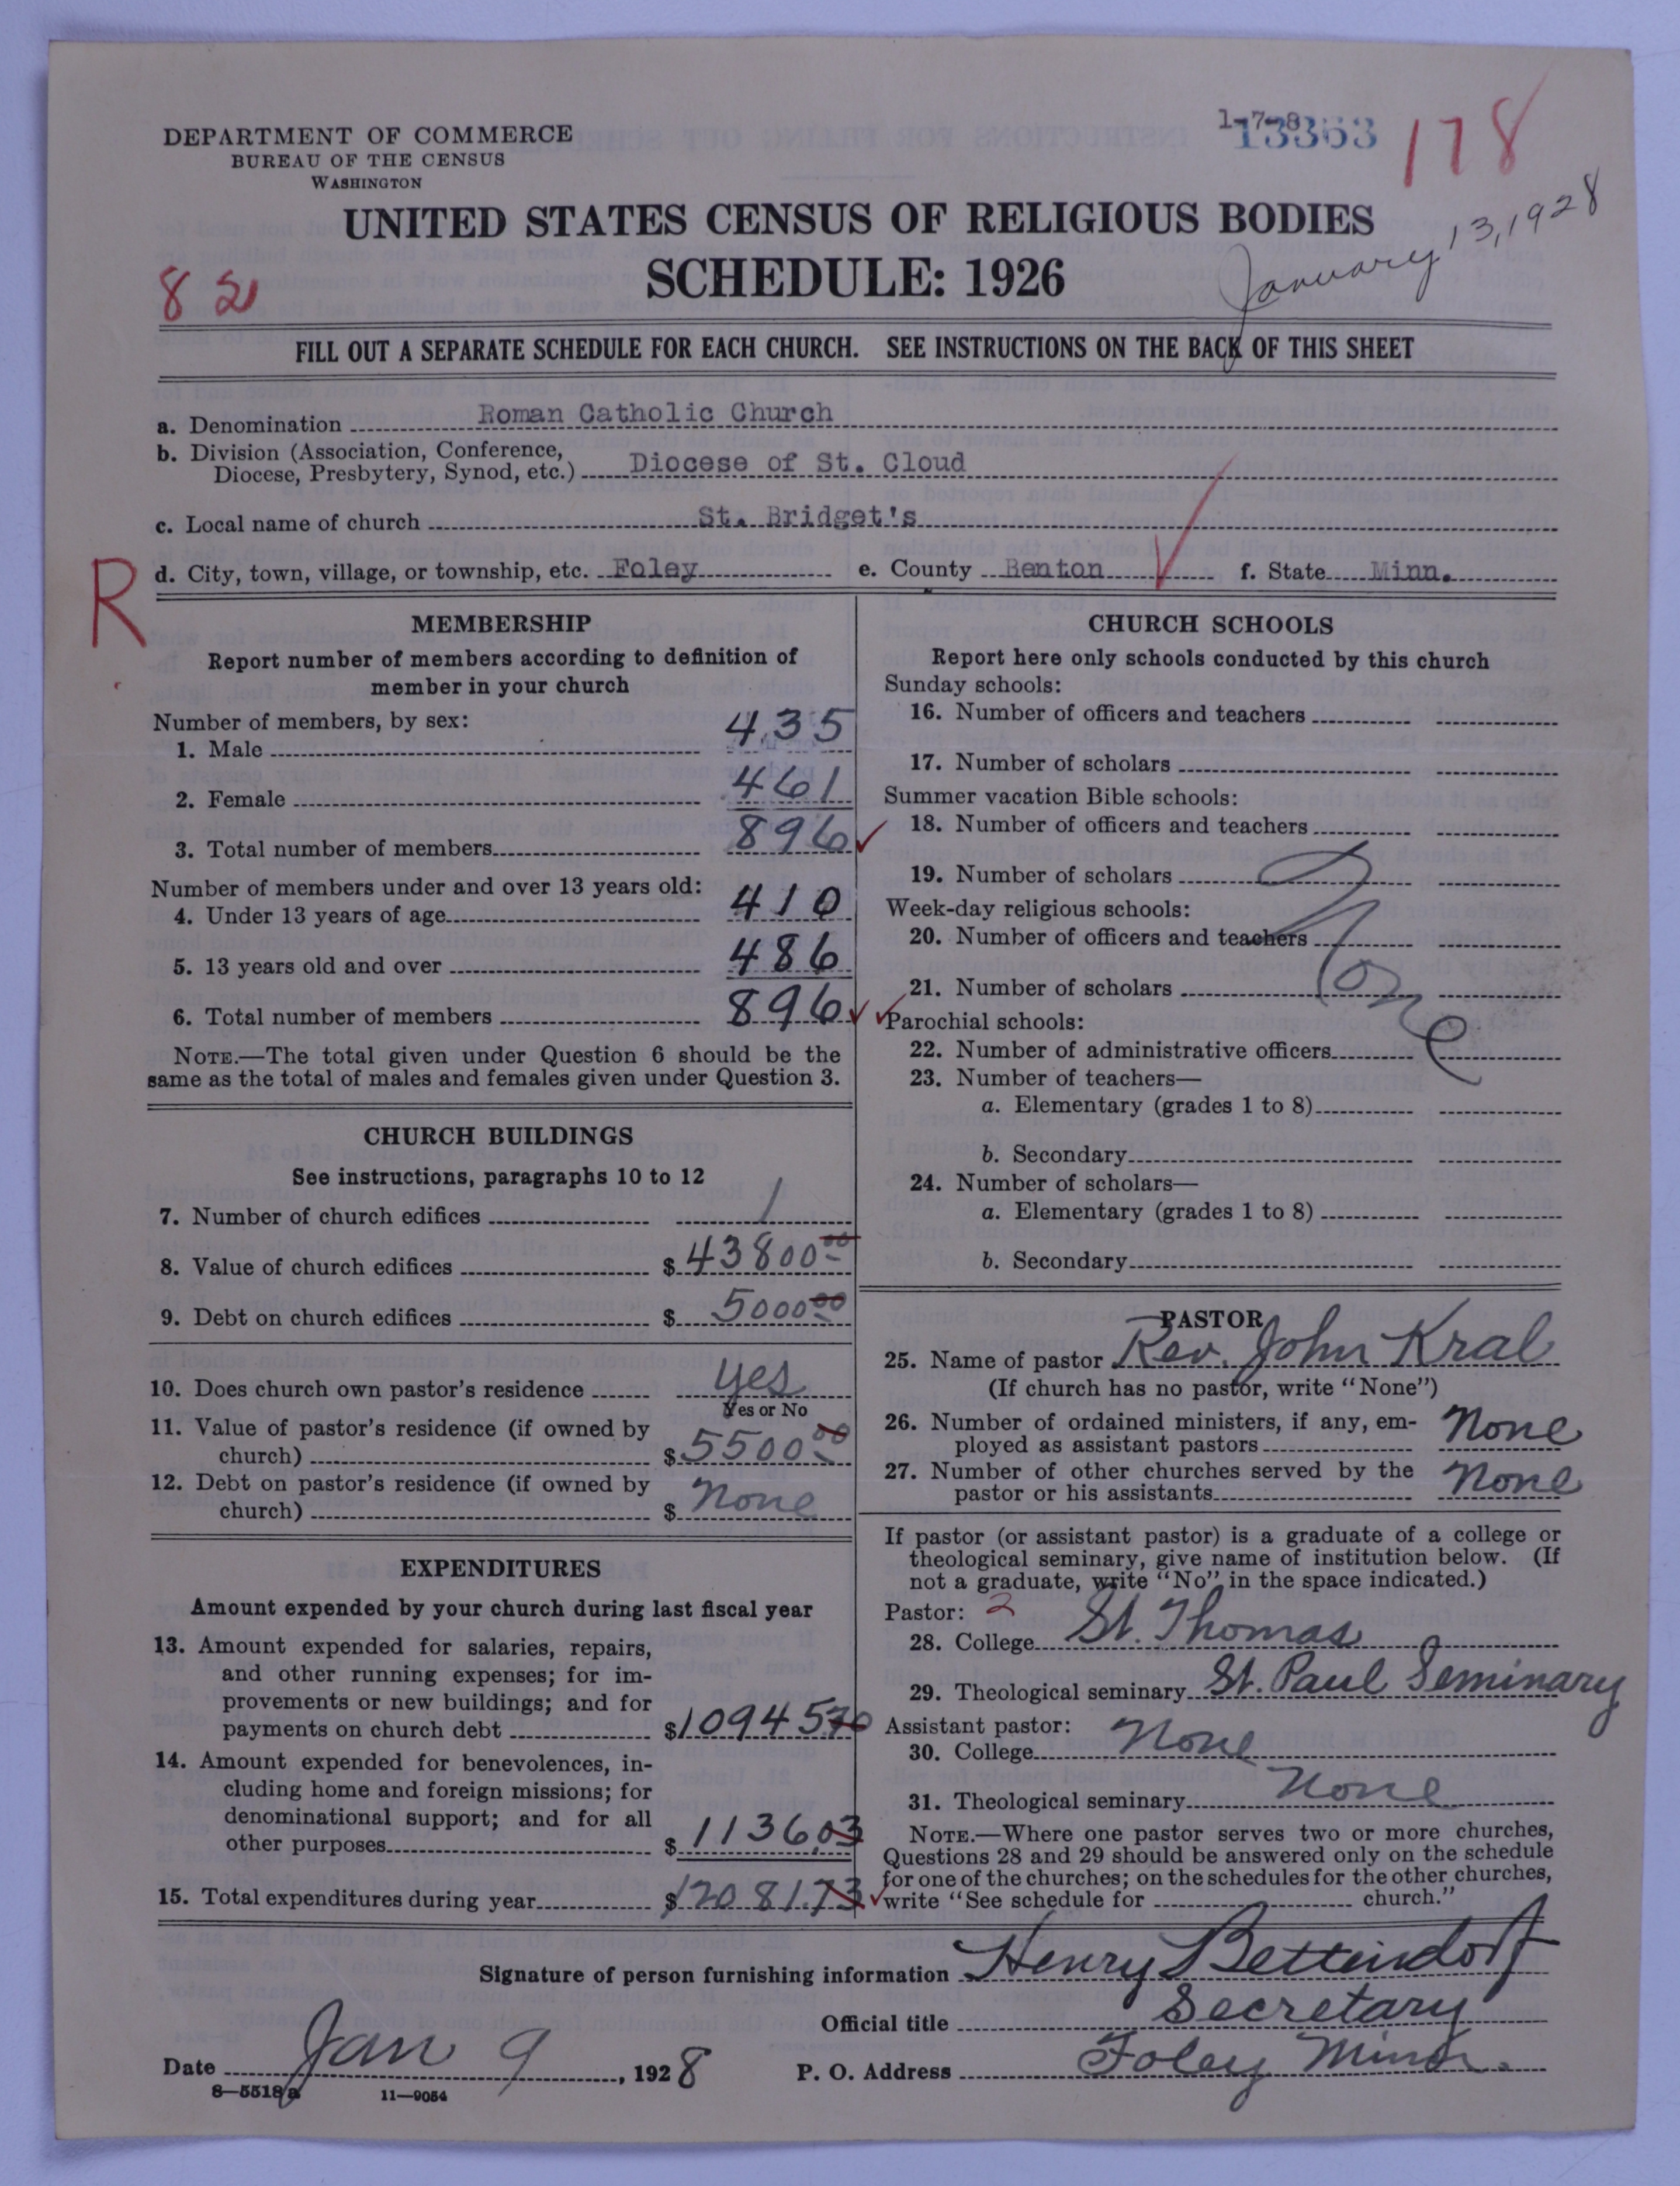 DEPARTMENT OF COMMERCE
BUREAU OF THE CENSUS
WASHINGTON
1-7-8
13363
178
UNITED STATES CENSUS OF RELIGIOUS BODIES
SCHEDULE: 1926
January 13, 1928
82
FILL OUT A SEPARATE SCHEDULE FOR EACH CHURCH. SEE INSTRUCTIONS ON THE BACK OF THIS SHEET
a. Denomination Roman Catholic Church
b. Division (Association, Conference,
Diocese, Presbytery, Synod, etc.) Diocese of St. Cloud
c. Local name of church St. Bridget's
R
d. City, town, village, or township, etc. Foley e. County Benton f. State Minn.
MEMBERSHIP
Report number of members according to definition of
member in your church
Number of members, by sex:
1. Male 435
2. Female 461
3. Total number of members 896
Number of members under and over 13 years old:
4. Under 13 years of age 410
5. 13 years old and over 486
6. Total number of members 896
NOTE.—The total given under Question 6 should be the
same as the total of males and females given under Question 3.
CHURCH BUILDINGS
See instructions, paragraphs 10 to 12
7. Number of church edifices 1
8. Value of church edifices $43800 00
9. Debt on church edifices $5000 00
10. Does church own pastor's residence yes
Yes or No
11. Value of pastor's residence (if owned by
church) $5500 00
12. Debt on pastor's residence (if owned by
church) $ None
EXPENDITURES
Amount expended by your church during last fiscal year
13. Amount expended for salaries, repairs,
and other running expenses; for im-
provements or new buildings; and for
payments on church debt $10945.70
14. Amount expended for benevolences, in-
cluding home and foreign missions; for
denominational support; and for all
other purposes $1136.03
15. Total expenditures during year $12081.73
CHURCH SCHOOLS
Report here only schools conducted by this church
Sunday schools:
16. Number of officers and teachers
17. Number of scholars
Summer vacation Bible schools:
18. Number of officers and teachers
19. Number of scholars
Week-day religious schools:
20. Number of officers and teachers
None
21. Number of scholars
Parochial schools:
22. Number of administrative officers
23. Number of teachers—
a. Elementary (grades 1 to 8)
b. Secondary
24. Number of scholars—
a. Elementary (grades 1 to 8)
b. Secondary
PASTOR
25. Name of pastor Rev. John Kral
(If church has no pastor, write "None")
26. Number of ordained ministers, if any, em-
ployed as assistant pastors None
27. Number of other churches served by the
pastor or his assistants None
If pastor (or assistant pastor) is a graduate of a college or
theological seminary, give name of institution below. (If
not a graduate, write "No" in the space indicated.)
Pastor: 2
28. College St. Thomas
29. Theological seminary St. Paul Seminary
Assistant pastor:
30. College None
31. Theological seminary None
NOTE.—Where one pastor serves two or more churches,
Questions 28 and 29 should be answered only on the schedule
for one of the churches; on the schedules for the other churches,
write "See schedule for church."
Signature of person furnishing information Henry Bettendorf
Official title Secretary
Date Jan 9, 1928 P. O. Address Foley Minn.
8—5518 a 11—9054